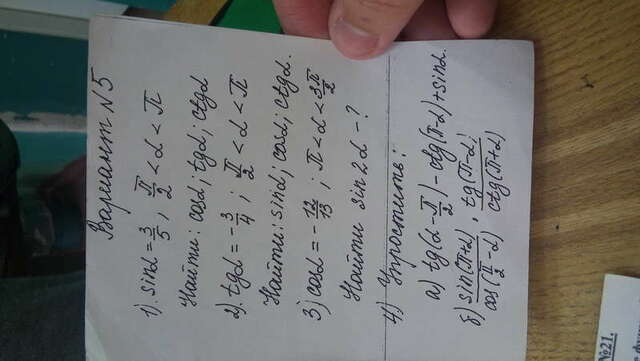 Вариант N 5
1). sinα = 3/5, π/2 < α < π
Найти: cosα; tgα; ctgα
2). tgα = -3/4; π/2 < α < π
Найти: sinα; cosα; ctgα.
3) cosα = -12/13; π < α < 3π/2
Найти sin2α - ?
4) Упростить:
а) tg(α - π/2) - ctg(π-α) + sinα.
б) sin(π+α)/cos(π/2 - α) · tg(π-α)/ctg(π+α)
№21.